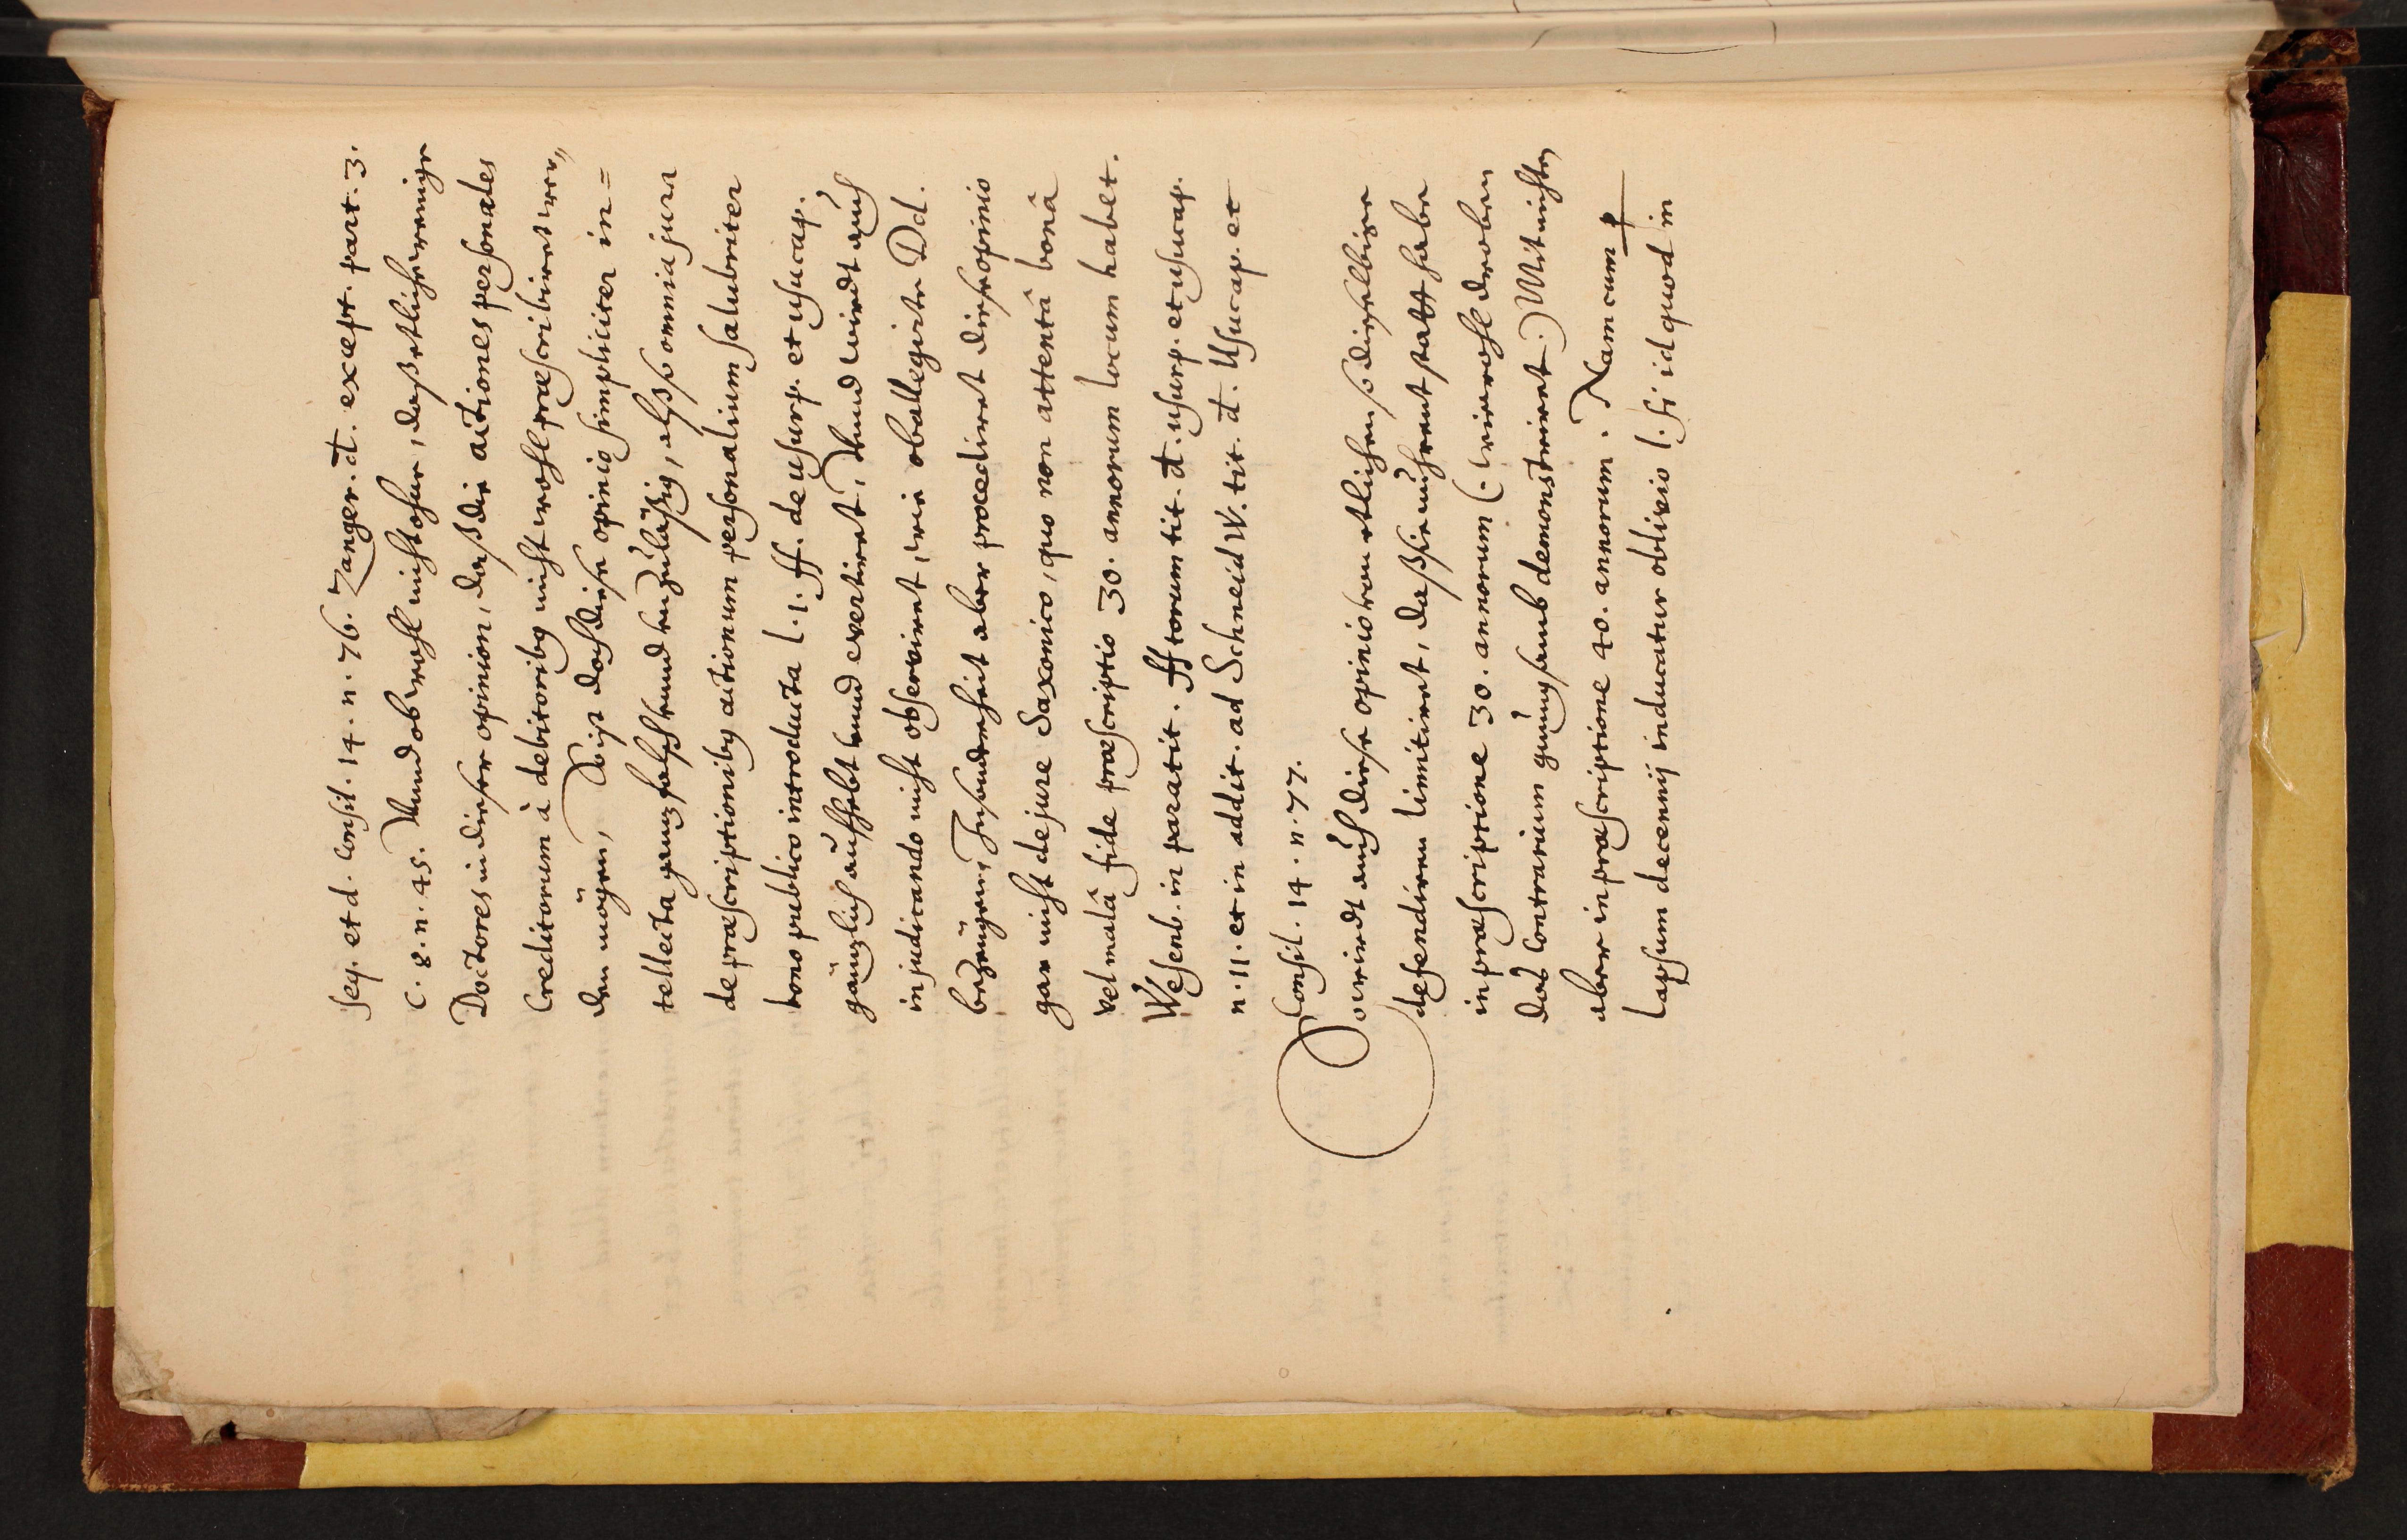 seq. et d. Consil. 14. n. 76. Zanger. d. except. part. 3.
C. 8. n. 45. Vnnd ob wohl nicht ohne, daß etliche wenige
Doctores in dieser opinion, daß die actiones personales
Creditorum à debitoribus nicht wohl præscribiret wer„
den mögen, So ist doch diese opinio simpliciter in=
tellecta gantz falsch vnnd vnzuläßig, alß so omnia jura
de præscriptionibus actionum personalium salubriter
bono publico introducta l. 1. ff. de usurp. et usucap.
gäntzlich auffhebt vnnd evertiret, Vnnd wirdt auch
in judicando nicht observiret, wie oballegirte Dd.
bezeügen, Insonderheit aber procediret diese opinio
gar nicht de jure Saxonico, quo non attentâ bonâ
vel malâ fide præscriptio 30. annorum locum habet.
Wesenb. in paratit. ff torum tit. d. usurp. et usucap.
n. 11. et in addit. ad Schneidw. tit. d. Usucap. et
Consil. 14. n. 77.
So wirdt auch diese opinio von etlichen so dieselbige
defendiren limitiret, daß sie nuhrent statt habe
in præscriptione 30. annorum (: wiewohl droben
das Contrarium gnungsamb demonstriret :) Mit nichten
aber in præscriptione 40. annorum. Nam cum p
lapsum decennij inducatur oblivio l. si id quod in